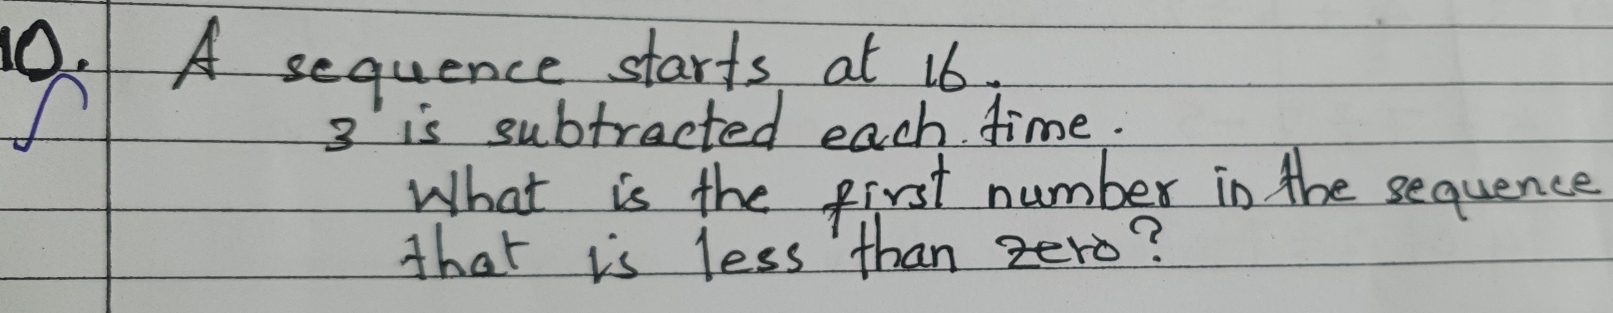 10. A sequence starts at 16.
3 is subtracted each time.
What is the first number in the sequence
that is less than zero?